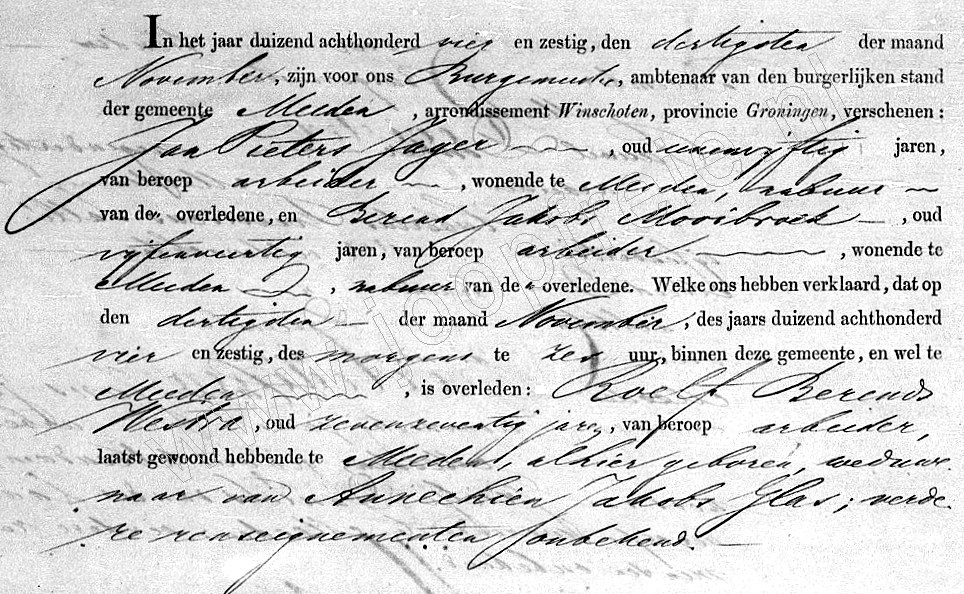 In het jaar duizend achthonderd vier en zestig, den dertigsten der maand
November, zijn voor ons Burgemeester, ambtenaar van den burgerlijken stand
der gemeente Meeden, arrondissement Winschoten, provincie Groningen, verschenen:
Jan Pieters Jager, oud eenenvijftig jaren,
van beroep arbeider, wonende te Meeden, nabuur
van de overledene, en Berend Jakobs Mooibroek, oud
vijfenveertig jaren, van beroep arbeider, wonende te
Meeden, nabuur van de overledene. Welke ons hebben verklaard, dat op
den dertigsten der maand November, des jaars duizend achthonderd
vier en zestig, des morgens te zes uur, binnen deze gemeente, en wel te
Meeden, is overleden: Roelf Berends
Westra, oud zevenzeventig jaren, van beroep arbeider,
laatst gewoond hebbende te Meeden, alhier geboren, weduwe-
naar van Annechien Jakobs Glas; verde-
re renseignementen onbekend.